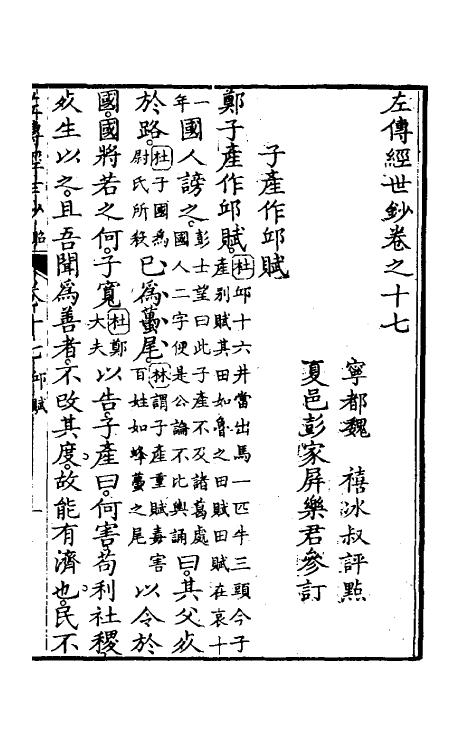 左傳經世鈔卷之十七
寧都魏　禧冰叔評點
夏邑彭家屏樂君參訂
子產作邱賦
鄭子產作邱賦。杜邱十六井當出馬一匹牛三頭今子產別賦其田如魯之田賦田賦在哀十
一年國人謗之。彭士望曰此子產不及諸葛處國人二字便是公論不比輿誦曰。其父𣦸
於路。杜子國為尉氏所殺已爲蠆尾。林謂子產重賦毒害百姓如蜂蠆之尾以令於
國。國將若之何。子寬杜鄭大夫以告。子產曰。何害。苟利社稷。
𣦸生以之。且吾聞爲善者不改其度。故能有濟也。民不
左傳經世鈔
卷十七 邱賦
一